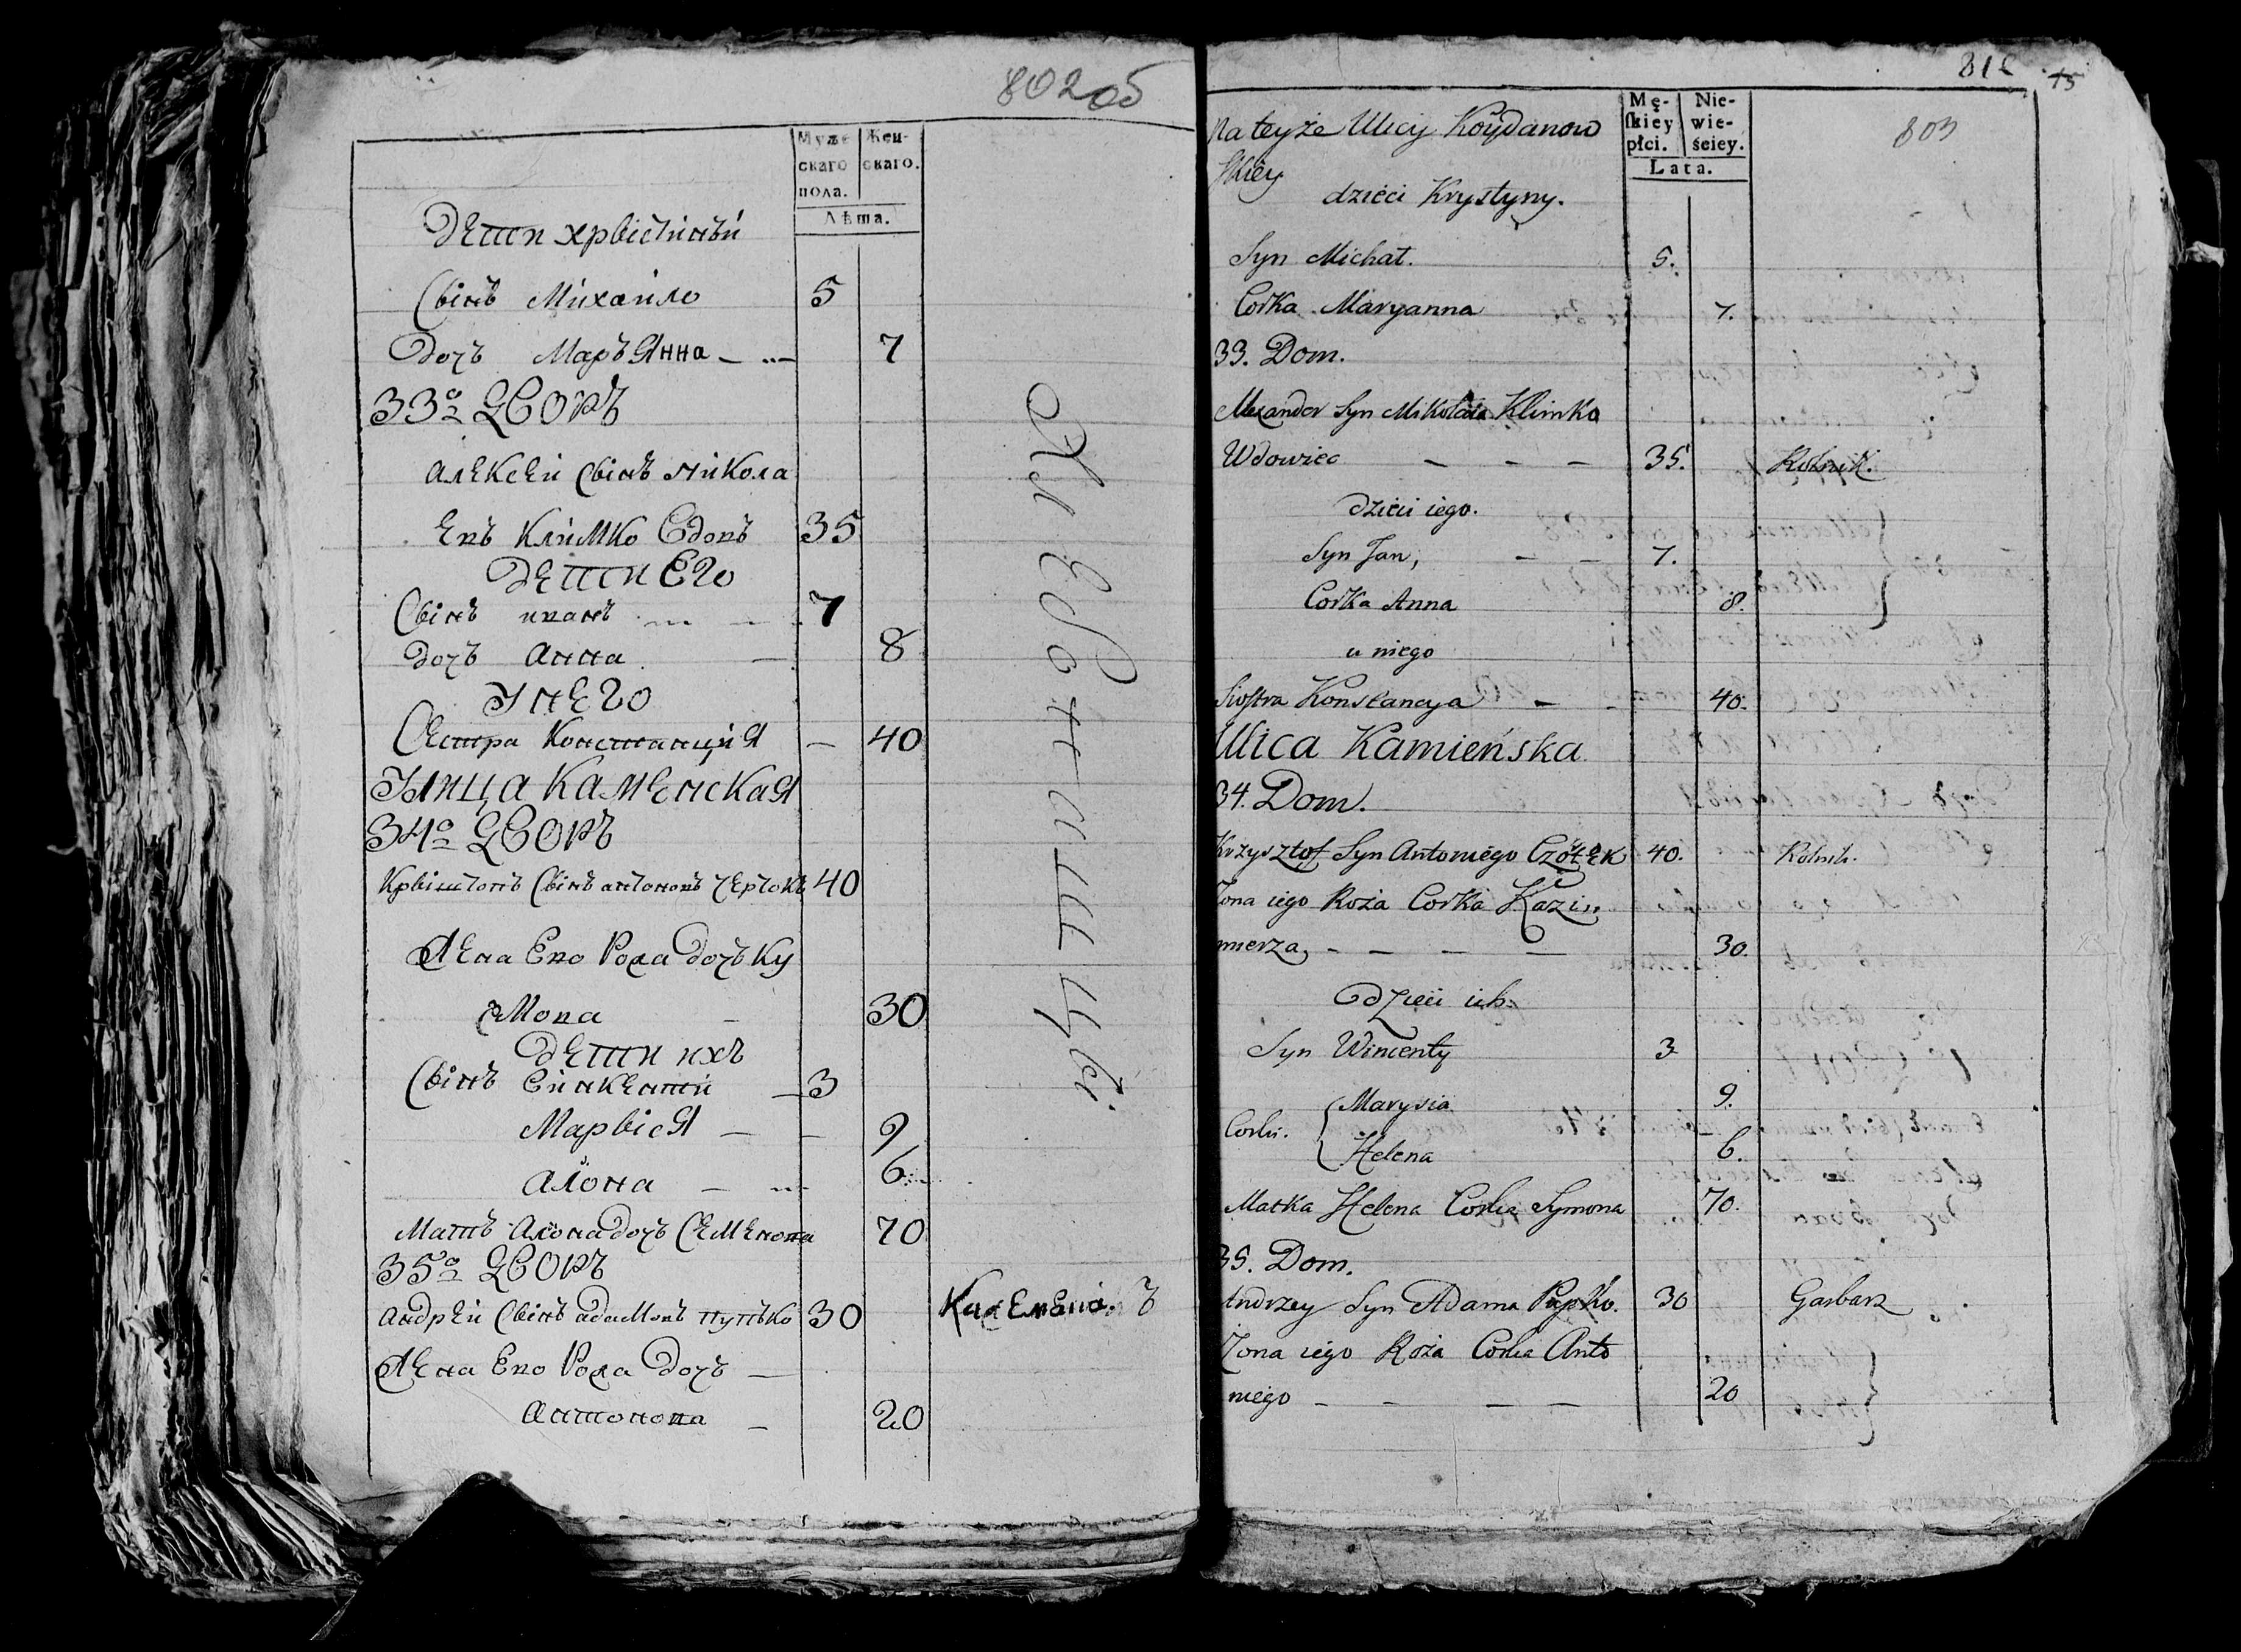 802 об
Муже
скаго
пола.
Жен-
скаго.
Лѣта.
Дети хрыстины
Сынъ Михайло 5
Дочь Маръянна 7
33о дворъ
Алексей Сынъ Никола
евъ Климко Вдовъ 35
Дети Его
Сынъ иванъ 7
дочь анна 8
У него
Сестра Констанция — 40
Улица Каменская
34о дворъ
Крыштопъ Сынъ антоновъ 40
Жена Ево Рожа дочь Ку
змова — 30
дети ихъ
Сынъ Винкентий — 3
Марыся — — 9
алёна — 6
Мать алёна дочь Семенова 70
35о дворъ
андрей Сынъ адамовъ пупько 30
Жена Ево Рожа Дочь —
антонова — 20
хлебопашцы.
815
15
803
Na teyże Ulicy Koydanow
skiey
Mę-
skiey
płci.
Nie-
wie-
ściey.
Lata.
dzieci Krystyny.
Syn Michał. 5.
Corka Maryanna 7.
33. Dom.
Alexander Syn Mikołaia Klimko
Wdowiec — — — 35. Rolnik.
dzieci iego.
Syn Jan, — — 7.
Corka Anna 8.
u niego
Siostra Konstancya — 40.
Ulica Kamieńska
34. Dom.
Krzysztof Syn Antoniego 40. Rolnik.
Żona iego Roża Corka Kazi
mierza, — — — — 30.
Dzieci ich.
Syn Wincenty 3
Corki. { Marysia 9.
Helena 6.
Matka Helena Corka Symona 70.
35. Dom.
Andrzey Syn Adama Pupko. 30 Garbarz
Żona iego Roża Corka Anto
niego — — — — 20